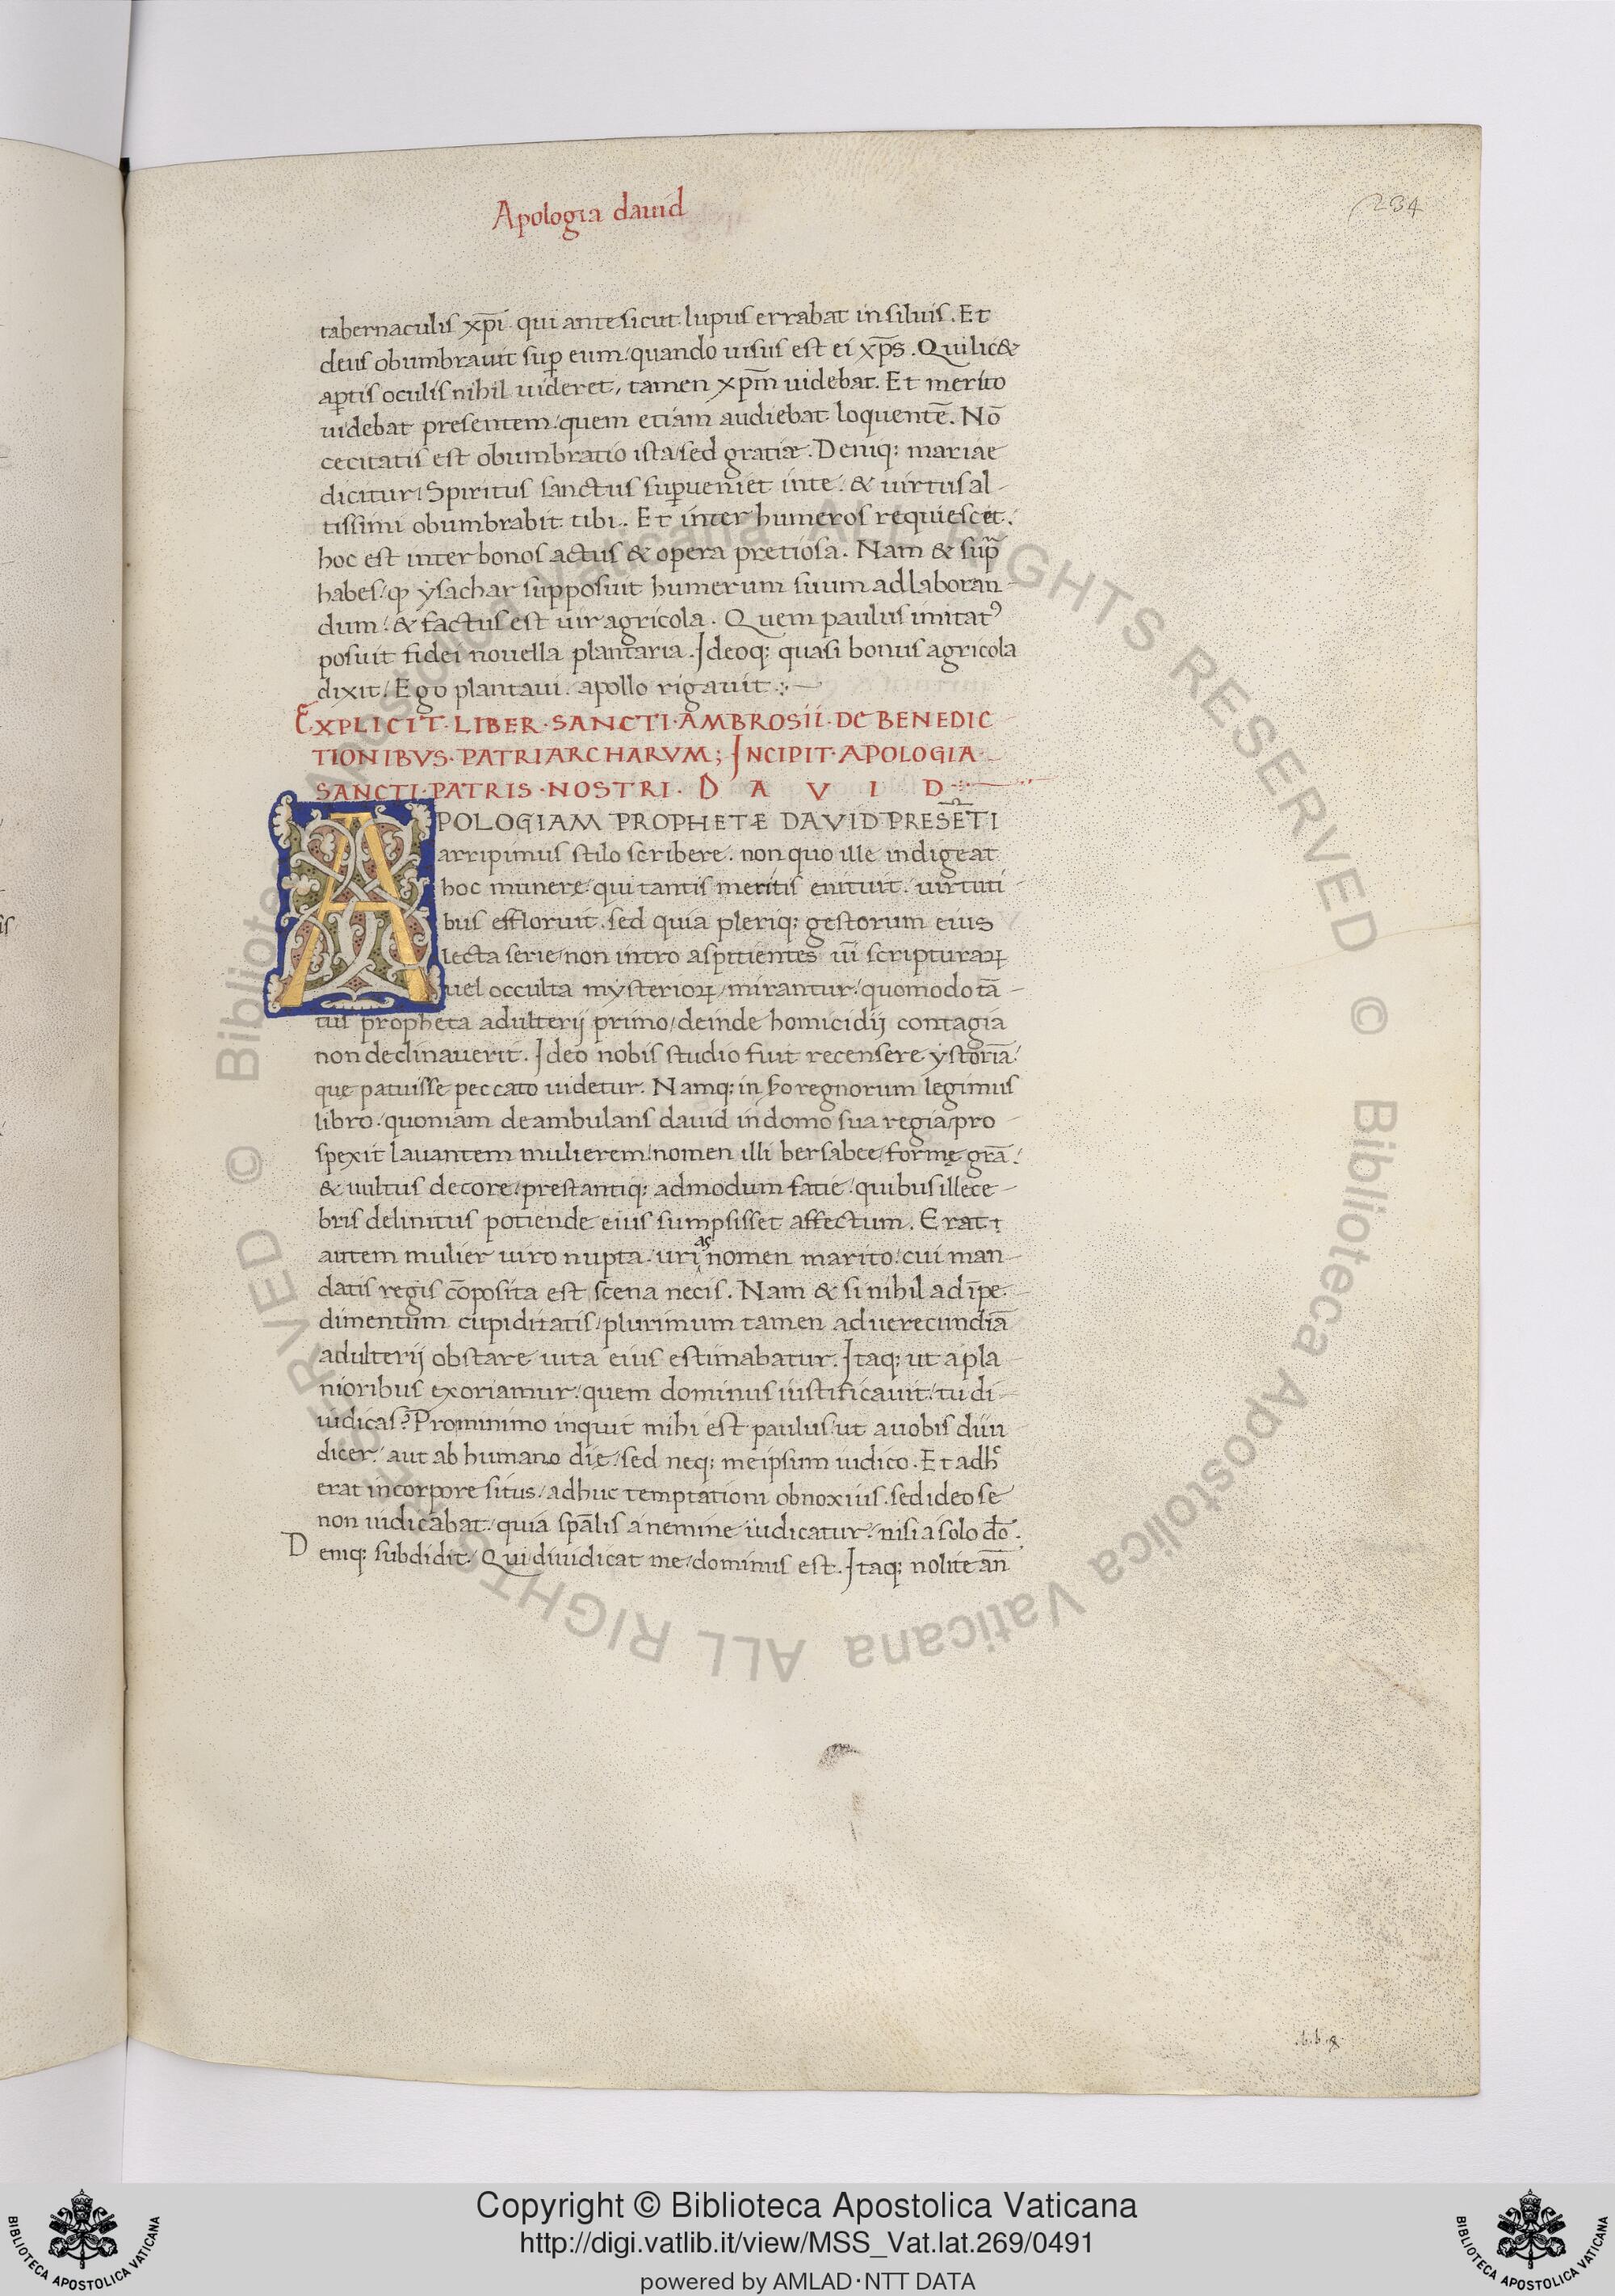 Apologia dauid
234
tabernaculis xp̄i. qui ante sicut lupus errabat in siluis. Et
deus obumbrauit suꝑ eum/ quando uisus est ei xp̄s. Qui lic&
aꝑtis oculis nihil uideret, tamen xp̄m uidebat. Et merito
uidebat presentem/ quem etiam audiebat loquentē. Nō
cecitatis est obumbratio ista/ sed gratiæ. Deniq; mariae
dicitur/ Spiritus sanctus suꝑueniet in te/ & uirtus al-
tissimi obumbrabit tibi. Et inter humeros requiescet/
hoc est inter bonos actus & opera pretiosa. Nam & sup̃
habes/ ꝙ ysachar supposuit humerum suum ad laboran-
dum/ & factus est uir agricola. Quem paulus imitatꝰ
posuit fidei nouella plantaria. Ideoq; quasi bonus agricola
dixit/ Ego plantaui. apollo rigauit
EXPLICIT·LIBER·SANCTI·AMBROSII·DE BENEDIC-
TIONIBVS·PATRIARCHARVM; INCIPIT·APOLOGIA-
SANCTI·PATRIS·NOSTRI· D A V I D
APOLOGIAM PROPHETÆ DAVID PRESĒTI
arripimus stilo scribere. non quo ille indigeat
hoc munere/ qui tantis meritis enituit/ uirtuti-
bus effloruit. sed quia pleriq; gestorum eius
lecta serie/ non intro aspitientes uī scripturaꝝ
uel occulta mysterioꝝ/ mirantur/ quomodo tā-
tus propheta adulterij primo/ deinde homicidij contagia
non declinauerit. Ideo nobis studio fuit recensere ystoriā/
que patuisse peccato uidetur. Namq; in sc̄do regnorum legimus
libro/ quoniam deambulans dauid in domo sua regia/ pro-
spexit lauantem mulierem/ nomen illi bersabee/ formę grā/
& uultus decore/ prestantiq; admodum fatie/ quibus illece-
bris delinitus potiende eius sumpsisset affectum. Erat
autem mulier uiro nupta/ uri as nomen marito/ cui man-
datis regis cōposita est scena necis. Nam & si nihil ad īpe-
dimentum cupiditatis/ plurimum tamen ad uerecundiā
adulterij obstare uita eius estimabatur. Itaq; ut a pla-
nioribus exoriamur/ quem dominus iustificauit/ tu di-
iudicas? Pro minimo inquit mihi est paulus/ ut a uobis diiu
dicer/ aut ab humano die/ sed neq; me ipsum iudico. Et adh͛
erat in corpore situs/ adhuc temptationi obnoxius. sed ideo se
non iudicabat/ quia sp̄alis a nemine iudicatur/ nisi a solo dō.
Deniq; subdidit/ Qui diiudicat me/ dominus est. Itaq; nolite an̄
© Biblioteca Apostolica Vaticana ALL RIGHTS RESERVED © Biblioteca Apostolica Vaticana ALL RIGHTS RESERVED
Copyright © Biblioteca Apostolica Vaticana
http://digi.vatlib.it/view/MSS_Vat.lat.269/0491
powered by AMLAD·NTT DATA
BIBLIOTECA APOSTOLICA VATICANA
BIBLIOTECA APOSTOLICA VATICANA